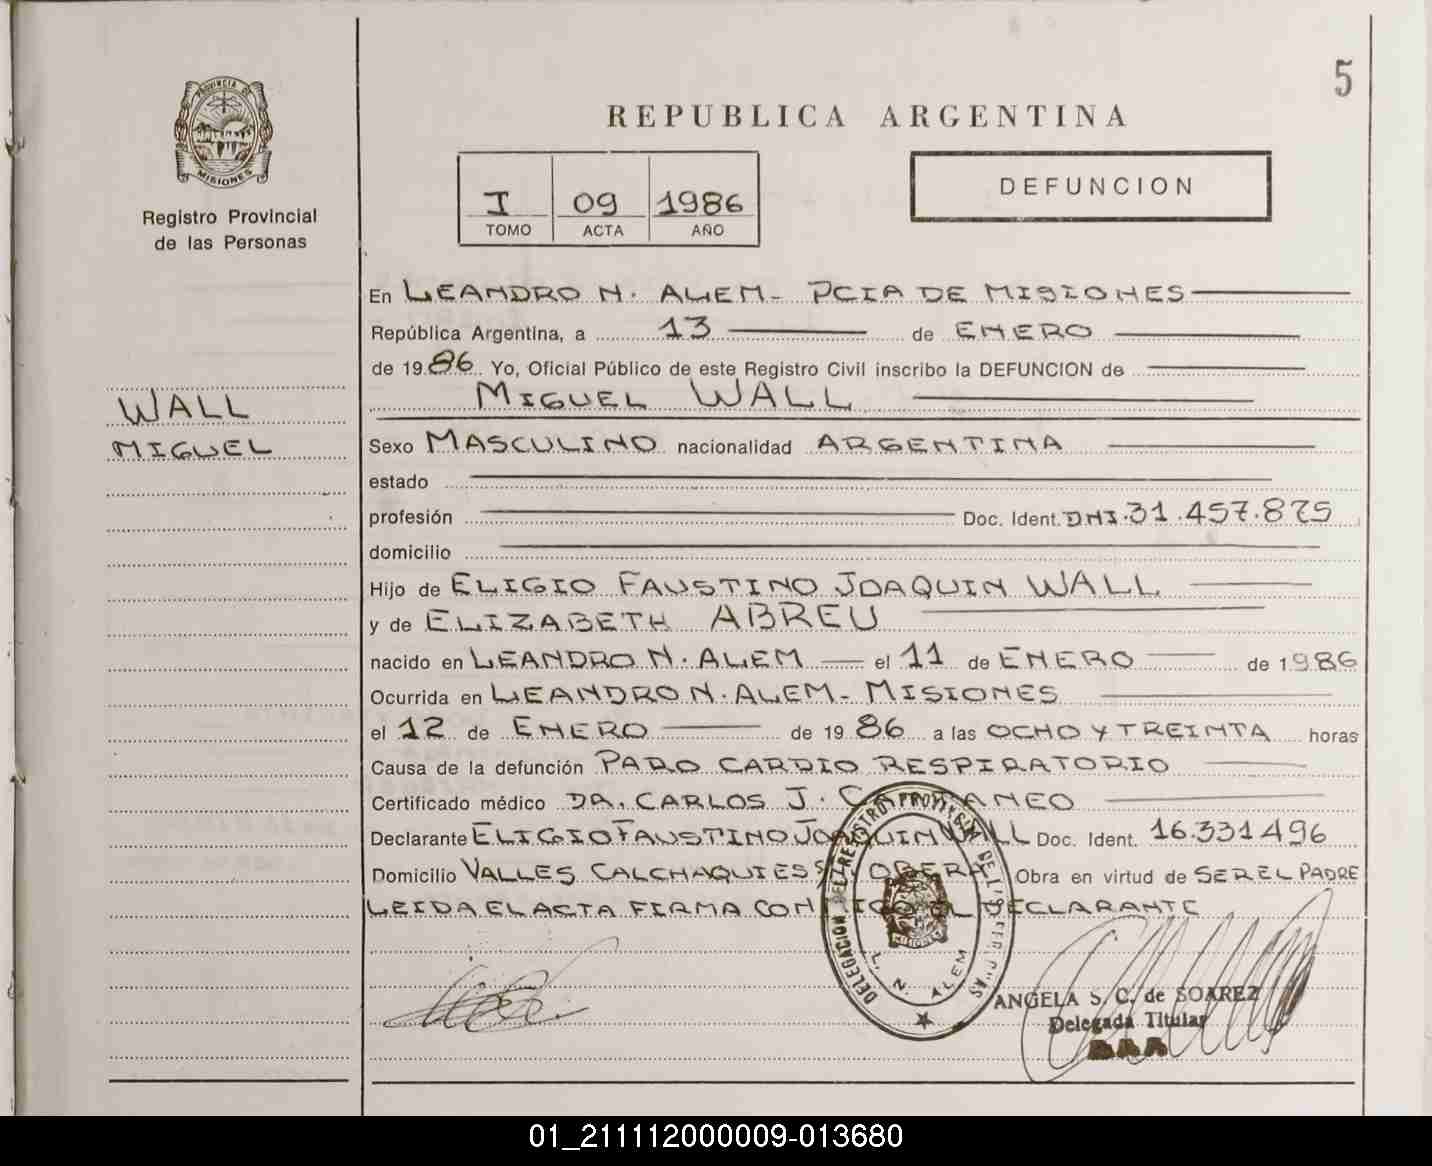 5
PROVINCIA DE
MISIONES
Registro Provincial
de las Personas
REPUBLICA ARGENTINA
I 09 1986
TOMO ACTA AÑO
DEFUNCION
WALL
MIGUEL
En LEANDRO N. ALEM - PCIA DE MISIONES
República Argentina, a 13 de ENERO
de 1986 Yo, Oficial Público de este Registro Civil inscribo la DEFUNCION de
MIGUEL WALL
Sexo MASCULINO nacionalidad ARGENTINA
estado
profesión Doc. Ident. DNI. 31.457.875
domicilio
Hijo de ELIGIO FAUSTINO JOAQUIN WALL
y de ELIZABETH ABREU
nacido en LEANDRO N. ALEM el 11 de ENERO de 1986
Ocurrida en LEANDRO N. ALEM - MISIONES
el 12 de ENERO de 1986 a las OCHO Y TREINTA horas
Causa de la defunción PARO CARDIO RESPIRATORIO
Certificado médico DR. CARLOS J.
Declarante ELIGIO FAUSTINO JOAQUIN WALL Doc. Ident. 16.331496
Domicilio VALLES CALCHAQUIES OBERA Obra en virtud de SER EL PADRE
LEIDA EL ACTA FIRMA CONMIGO EL DECLARANTE
DELEGACION DEL REGISTRO PROVINCIAL DE LAS PERSONAS
MISIONES
L. N. ALEM
ANGELA S. C. de SOAREZ
Delegada Titular
01_211112000009-013680